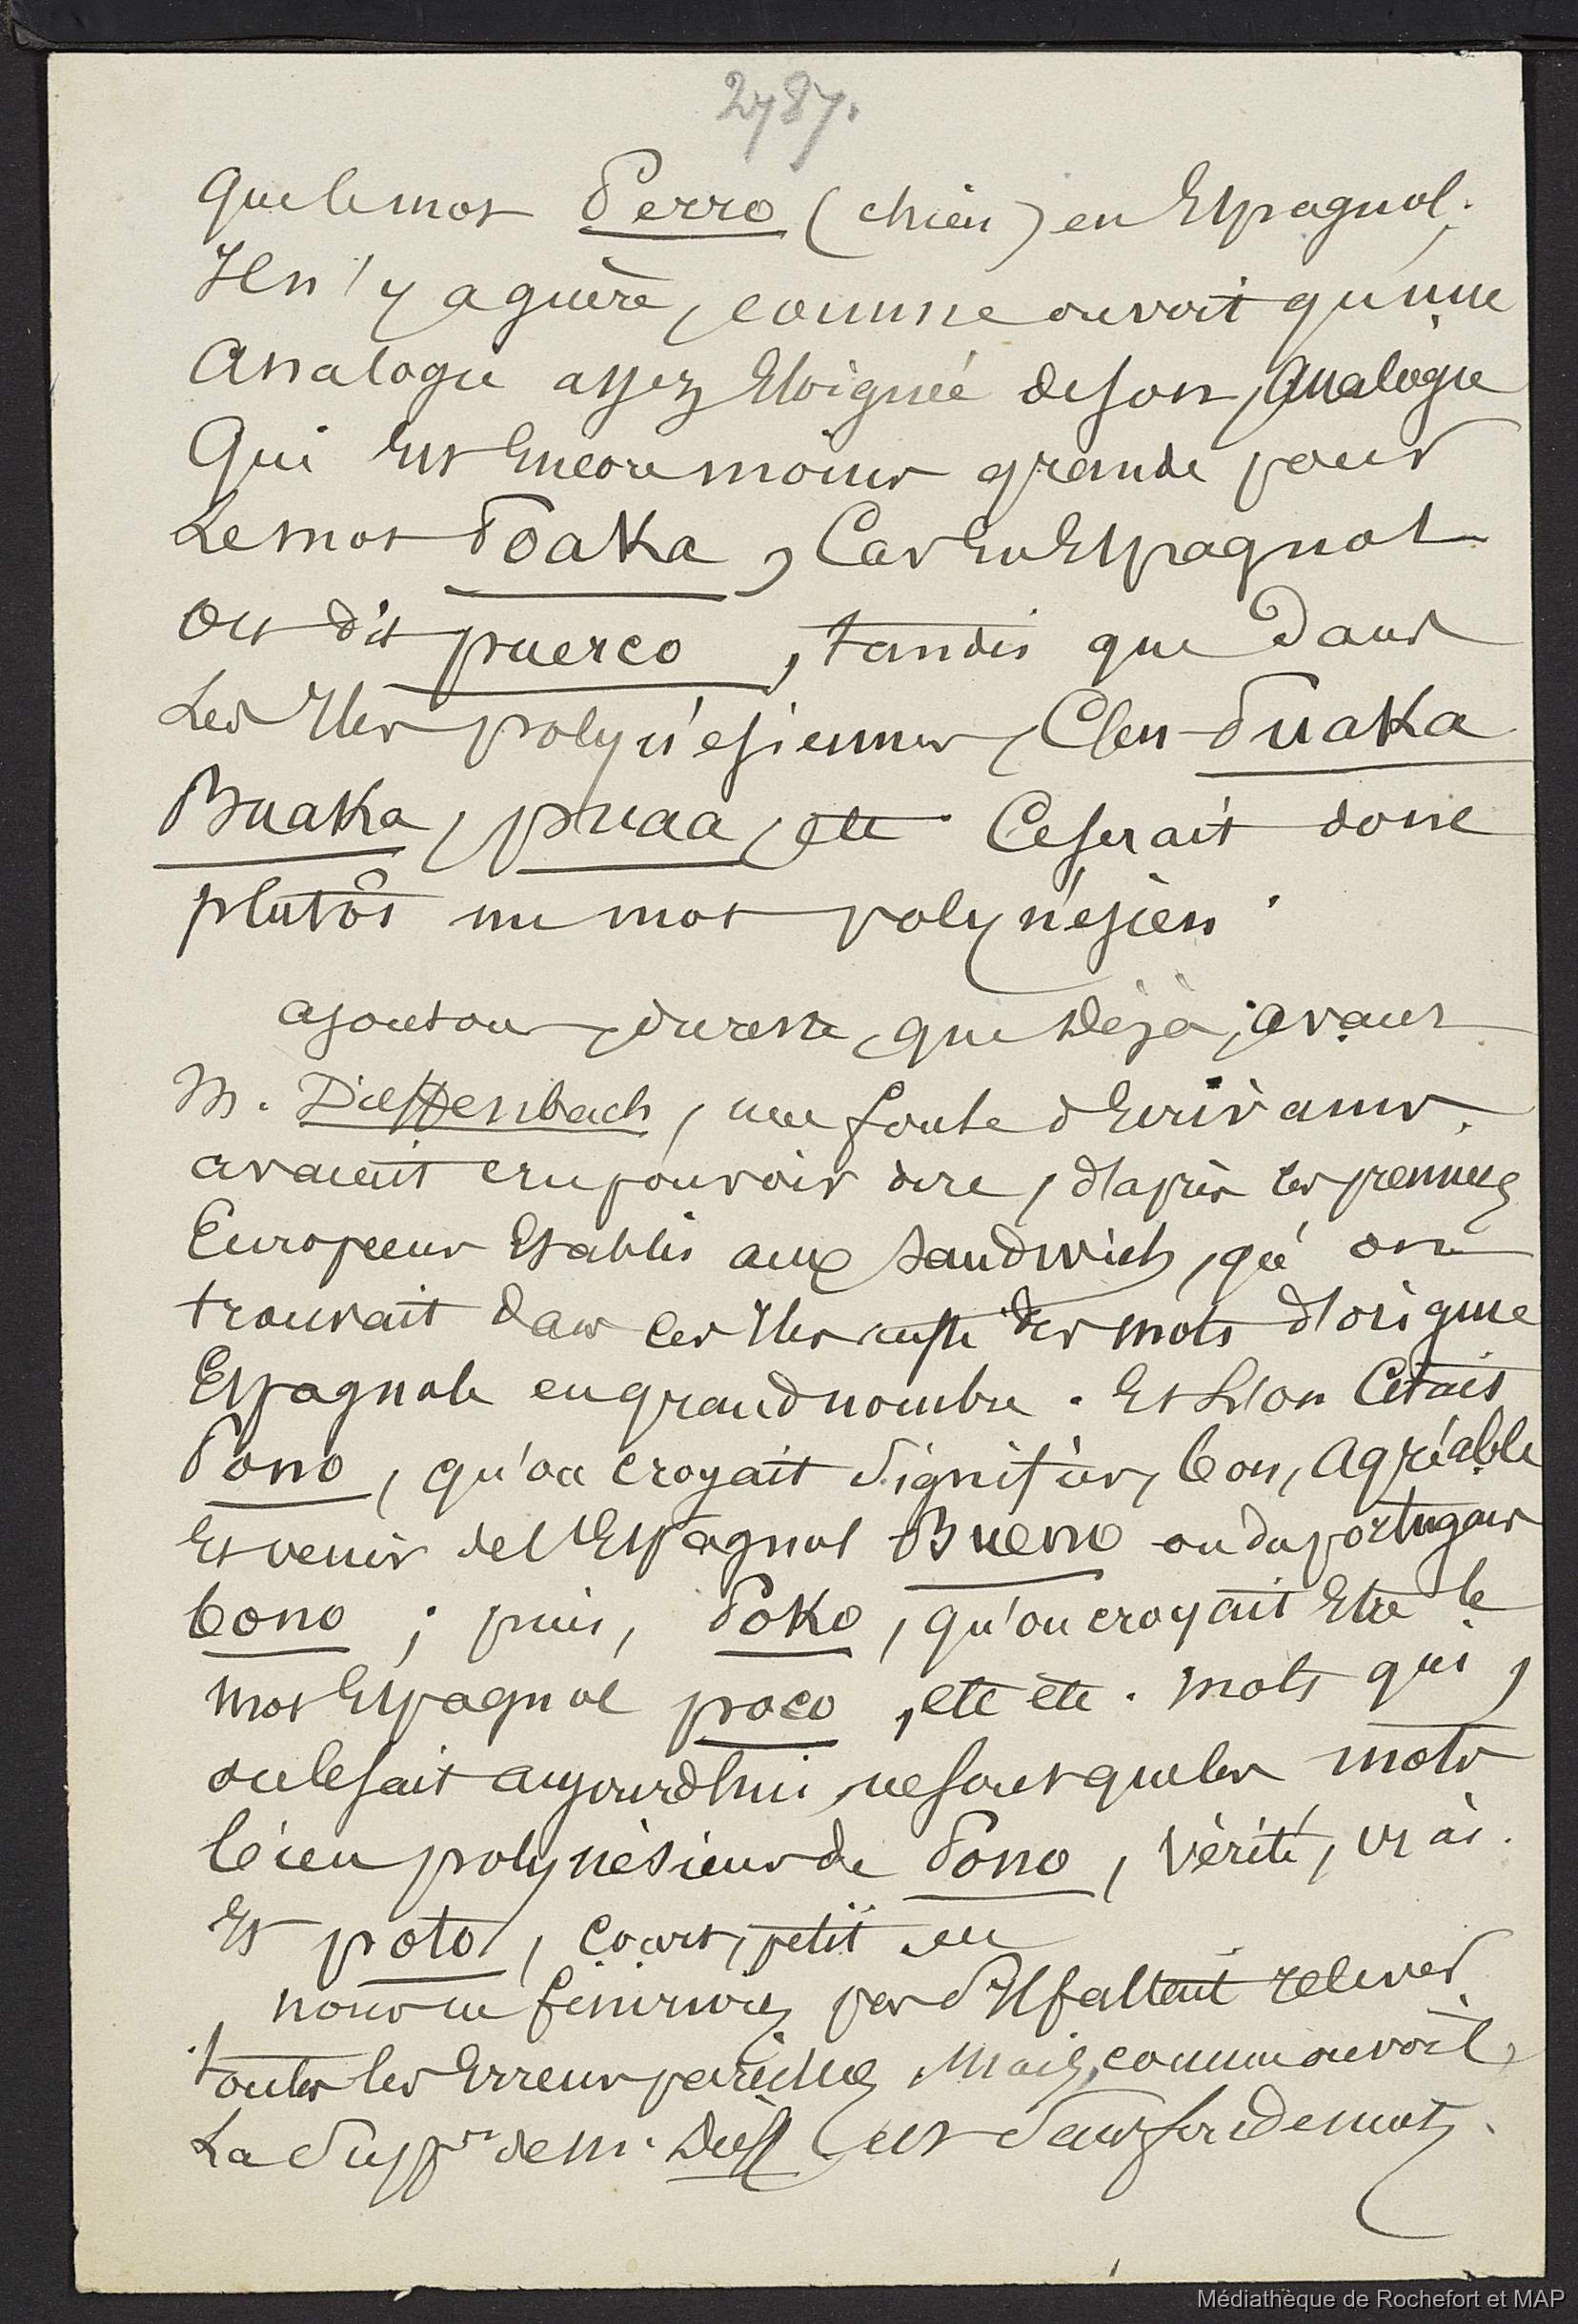 2787.
que le mot Perro (chien) en Espagnol.
Il n'y a guère, comme on voit qu'une
analogie assez Eloignée de son, analogie
Qui Est Encore moins grande pour
Le mot Poaka, Car En Espagnol
on dit puerco, tandis que dans
Les Iles polynésiennes, C'est Puaka
Buaka, puaa, etc. Ce serait donc
plutôt un mot polynésien.
ajoutons, du reste, que déjà, avant
M. Dieffenbach, une foule d'Ecrivains.
avaient cru pouvoir dire, d'après les premiers
Européens Etablis aux Sandwich, qu'on
trouvait dans ces Iles aussi des mots d'origine
Espagnole en grand nombre. Et L'on Citait
Pono, qu'on croyait Signifier, bon, agréable
Et venir de l'Espagnol Bueno ou du portugais
bono ; puis, Poko, qu'on croyait Etre le
mot Espagnol poco, etc etc. mots qui,
on le sait aujourd'hui, ne sont que les mots
bien polynésiens de Pono, vérité, vrai.
Et poto, court, petit etc
nous ne finirions pas S'Il fallait relever
toutes les Erreurs pareilles Mais, comme on voit,
La Suppon de M. Dieff est Sans fondement.
Médiathèque de Rochefort et MAP